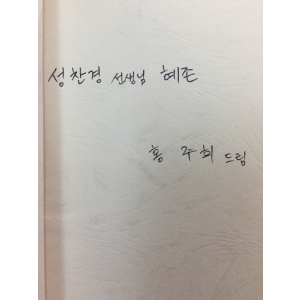 성찬경 선생님 혜존
홍 주희 드림